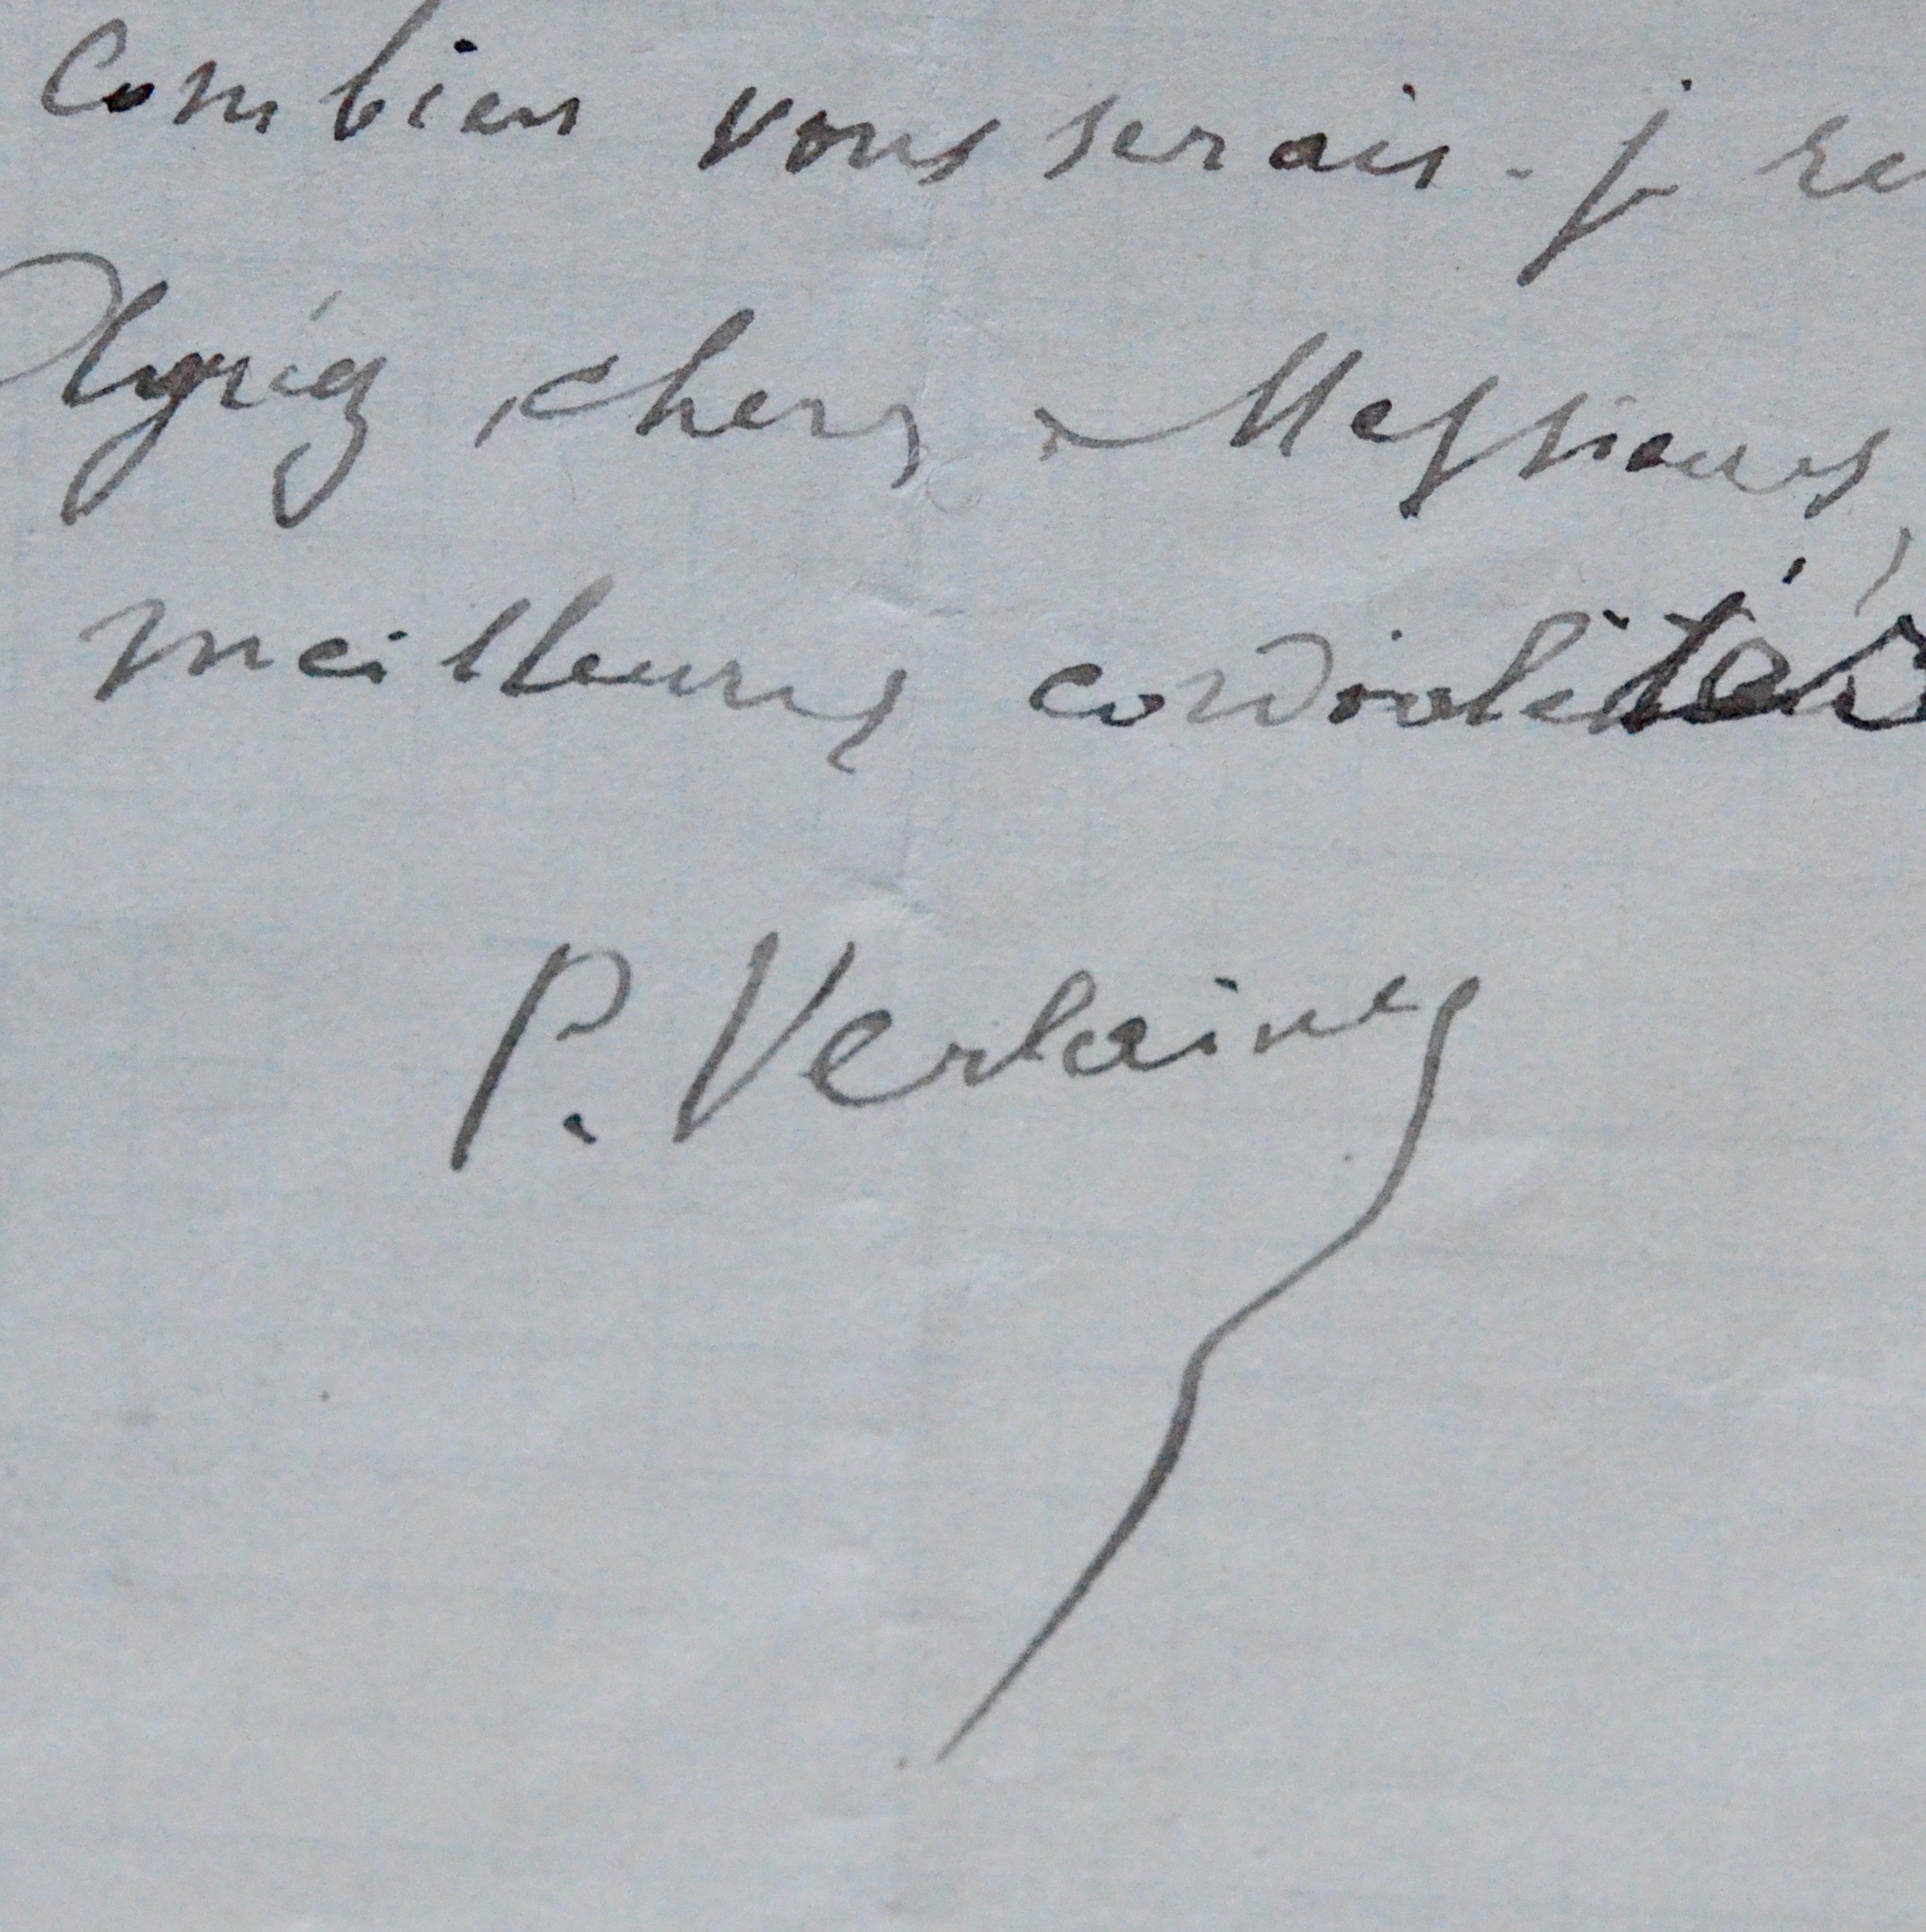 Combien vous serais-je re
Agréez, chers Messieurs,
meilleures cordialités
P. Verlaine